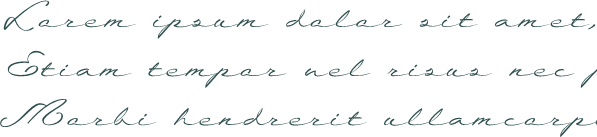 Lorem ipsum dolor sit amet,
Etiam tempor vel risus nec
Morbi hendrerit ullamcorpe